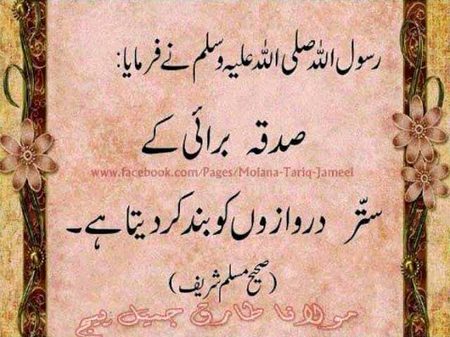 رسول اللہ صلی اللہ علیہ وسلم نے فرمایا:
صدقہ برائی کے
www.facebook.com/Pages/Molana-Tariq-Jameel
ستّر دروازوں کو بند کر دیتا ہے۔
(صحیح مسلم شریف)
مولانا طارق جمیل پیج